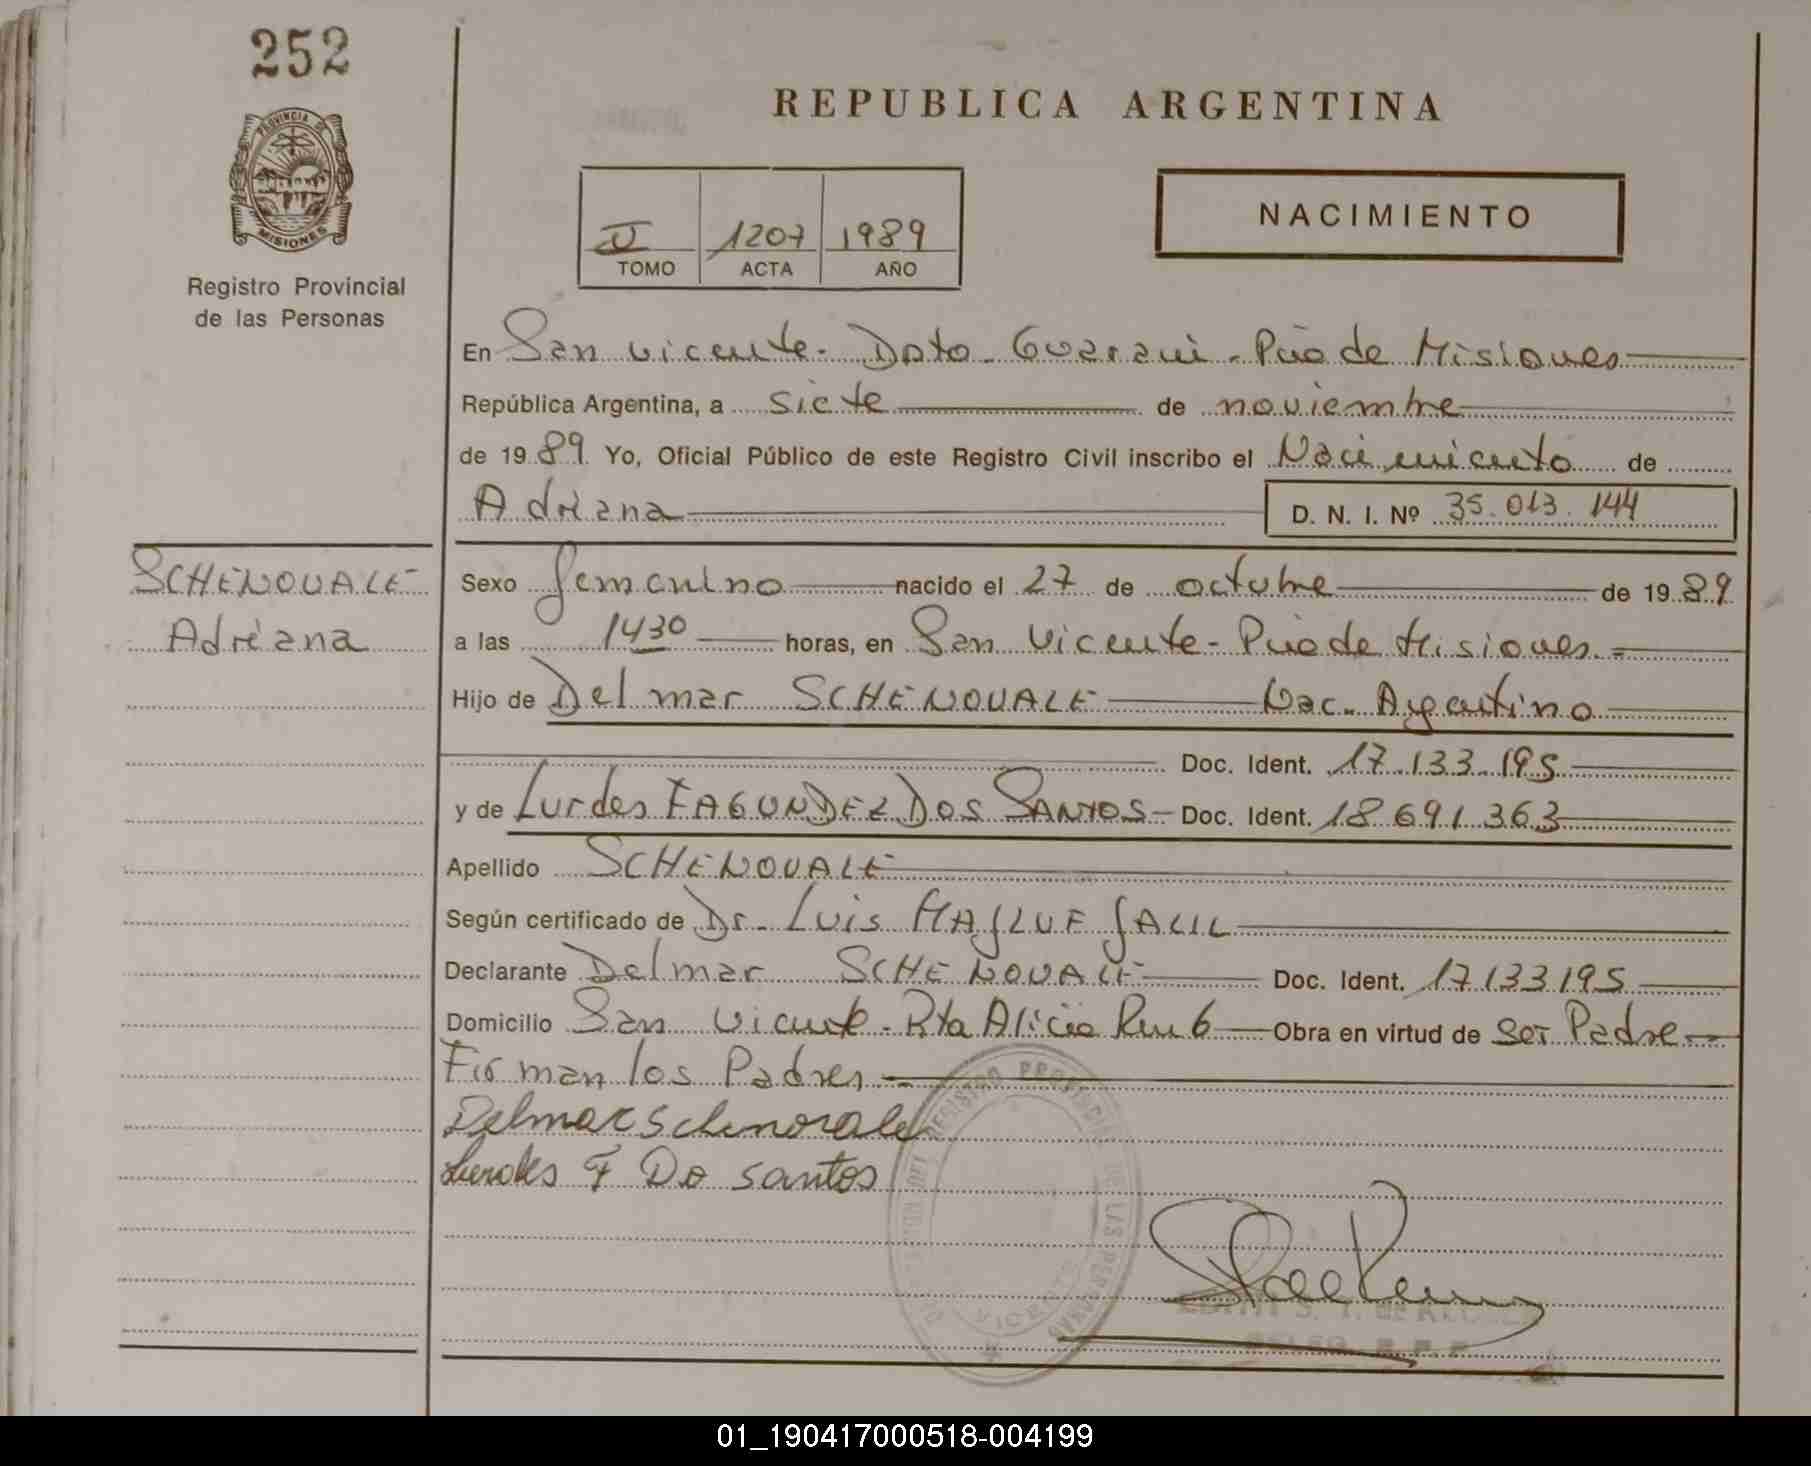 252
REPUBLICA ARGENTINA
PROVINCIA DE
MISIONES
Registro Provincial
de las Personas
1207 1989
TOMO ACTA AÑO
NACIMIENTO
En San Vicente - Dpto - Guarani - Pcia de Misiones
República Argentina, a siete de noviembre
de 1989 Yo, Oficial Público de este Registro Civil inscribo el Nacimiento de
Adriana D. N. I. Nº 35.013.144
SCHENOVALE
Adriana
Sexo femenino nacido el 27 de octubre de 1989
a las 1430 horas, en San Vicente - Pcia de Misiones. =
Hijo de Delmar SCHENOVALE Nac. Argentino
Doc. Ident. 17.133.195
y de Lurdes FAGUNDEZ DOS SANTOS - Doc. Ident. 18.691.363
Apellido SCHENOVALE
Según certificado de Dr. Luis JALIL
Declarante Delmar SCHENOVALE Doc. Ident. 17133195
Domicilio San Vicente - Pta Alicia Km 6 Obra en virtud de ser Padre
Firman los Padres
Delmar Schenovale
Lurdes F Do Santos
DEL REGISTRO PROVINCIAL DE LAS PERSONAS
VICENTE
01_190417000518-004199